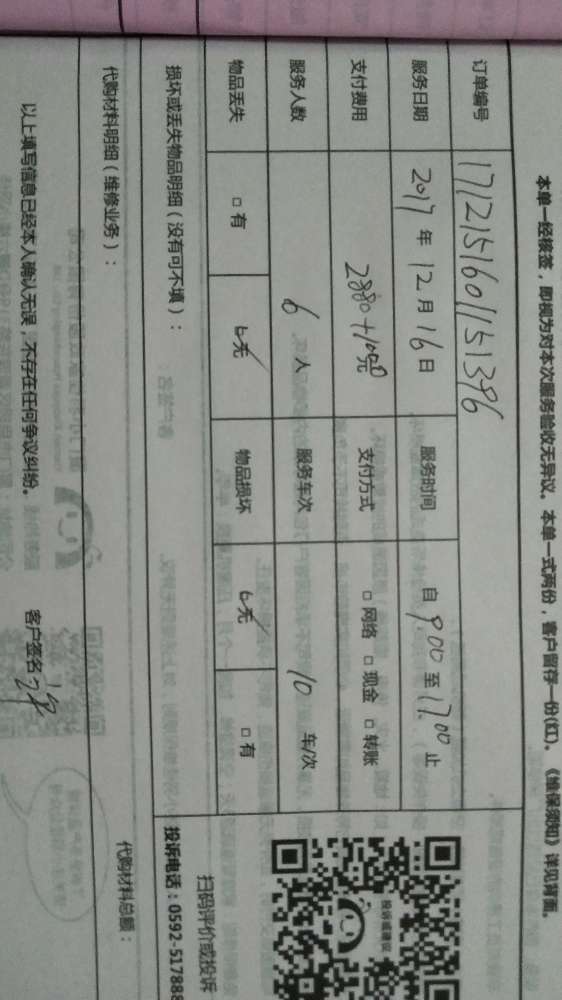 本单一经核签，即视为对本次服务验收无异议。本单一式两份，客户留存一份(红)。《维保须知》详见背面。
订单编号 1712151601151396
服务日期 2017年12月16日 服务时间 自 900 至 1700 止
支付费用 2880+100元 支付方式 □ 网络 □ 现金 □ 转账
服务人数 6 人 服务车次 10 车/次
物品丢失 □ 有 □ 无 物品损坏 □ 无 □ 有
损坏或丢失物品明细（没有可不填）：
投诉或建议
扫码评价或投诉
投诉电话：0592-517888
代购材料明细（维修业务）：
代购材料总额：
以上填写信息已经本人确认无误，不存在任何争议纠纷。 客户签名